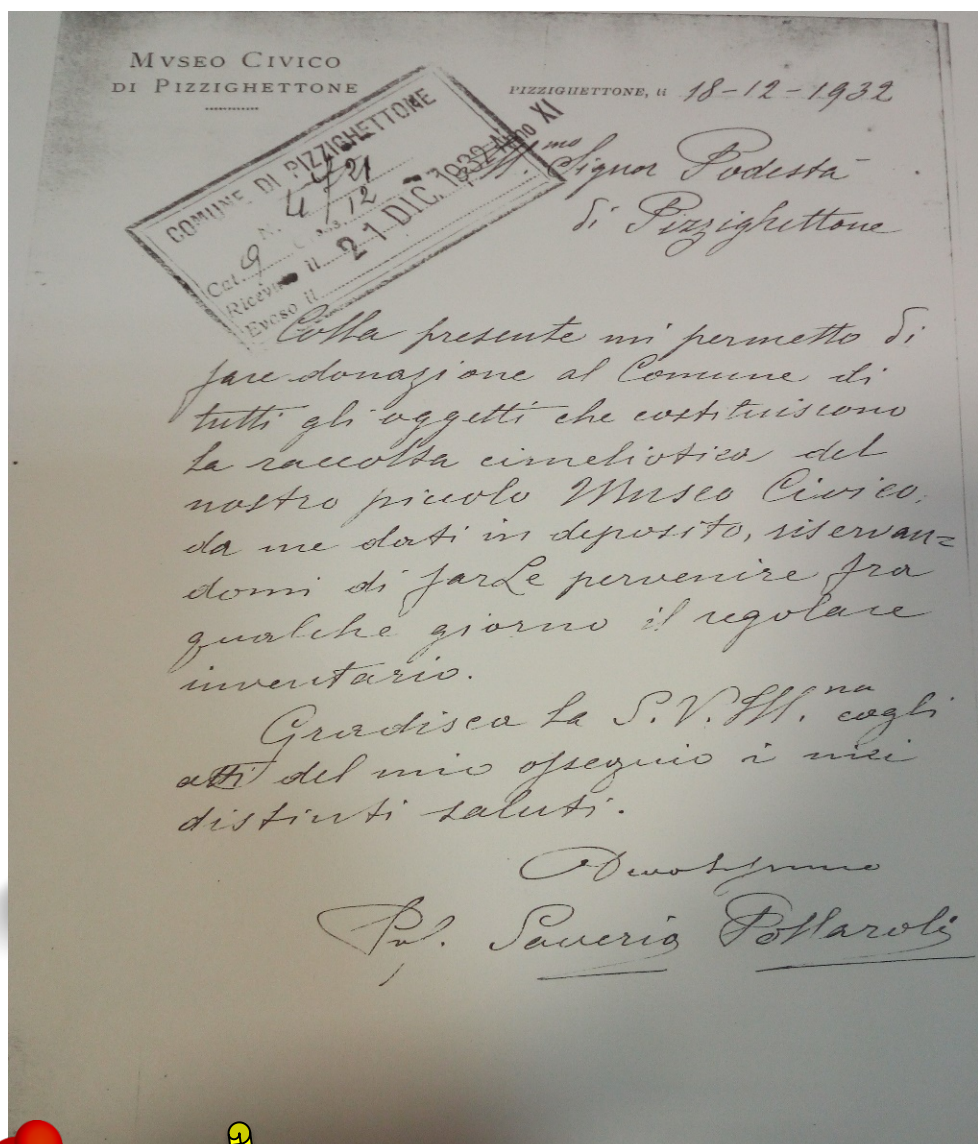 MVSEO CIVICO
DI PIZZIGHETTONE
PIZZIGHETTONE, li 18-12-1932
COMUNE DI PIZZIGHETTONE
N.
Cat. 9 Class. 12
Ricevuto il 21 DIC. 1932 Anno XI
Evaso il
Ill.mo Signor Podestà
di Pizzighettone
Colla presente mi permetto di
fare donazione al Comune di
tutti gli oggetti che costituiscono
la raccolta cimeliotica del
nostro piccolo Museo Civico,
da me dati in deposito, riservan=
domi di farLe pervenire fra
qualche giorno il regolare
inventario.
Gradisca la S.V.Ill.na cogli
atti del mio ossequio i miei
distinti saluti.
Devotissimo
Prof. Saverio Pollaroli